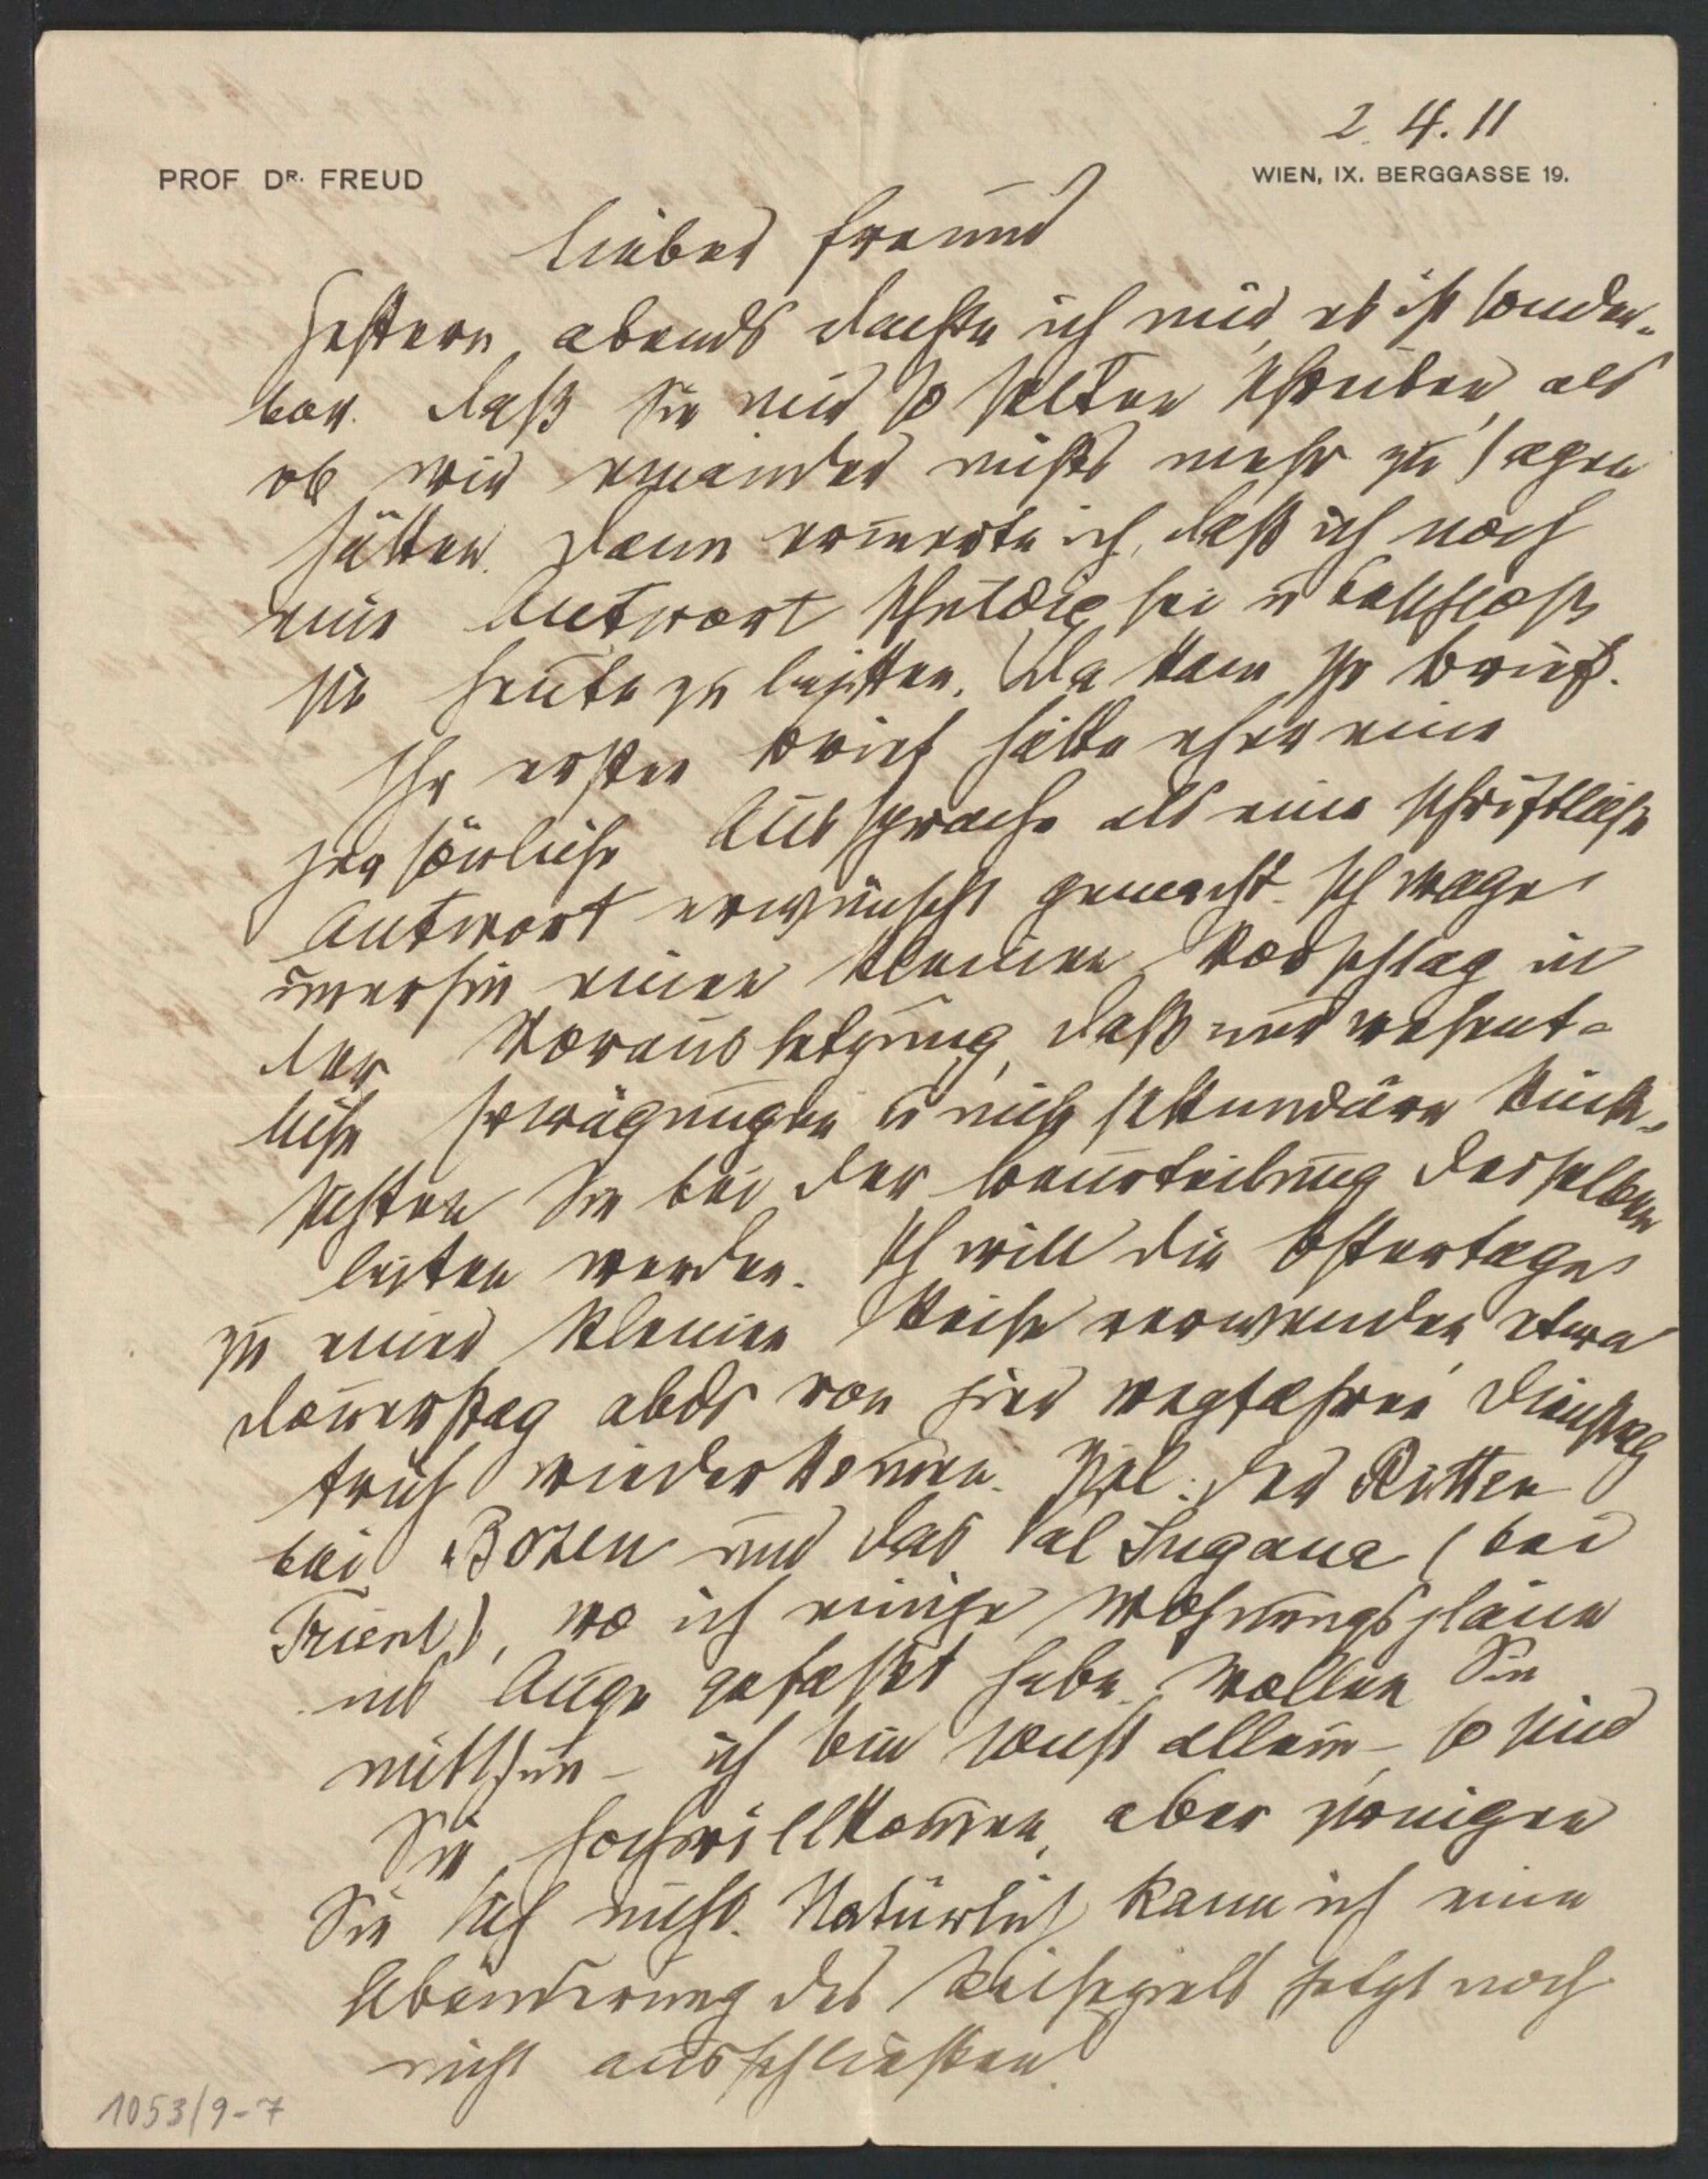 2. 4. 11
PROF DR. FREUD
WIEN, IX. BERGGASSE 19.
Lieber Freund
Gestern abends dachte ich mir, es ist sonder-
bar. daß Sie mir so selten schreiben, als
ob wir einander nichts mehr zu sagen
hätten. Dann erinnerte ich, daß ich noch
eine Antwort schuldig sei u beschloß,
sie heute zu leisten. Da kam Ihr Brief.
Ihr erster Brief hätte eher eine
persönliche Aussprache als eine schriftliche
Antwort erwünscht gemacht. Ich wage
imerhin einen kleinen Vorschlag in
der Voraussetzung, daß nur wesent-
liche Erwägungen u nicht sekundäre Rück-
sichten Sie bei der Beurteilung desselben
leiten werden. Ich will die Ostertage
zu einer kleinen Reise verwenden, etwa
Donnerstag abds von hier wegfahren, Dienstag
früh wiederkommen. Ziel: der Ritten
bei Bozen und das Val Sugana (bei
Trient), wo ich einige Wohnungspläne
ins Auge gefaßt habe. Wollen Sie
mitthun – ich bin sonst allein –, so sind
Sie hochwillkommen, aber zwingen
Sie sich nicht. Natürlich kann ich eine
Abänderung des Reiseziels jetzt noch
nicht ausschließen.
1053/9-7